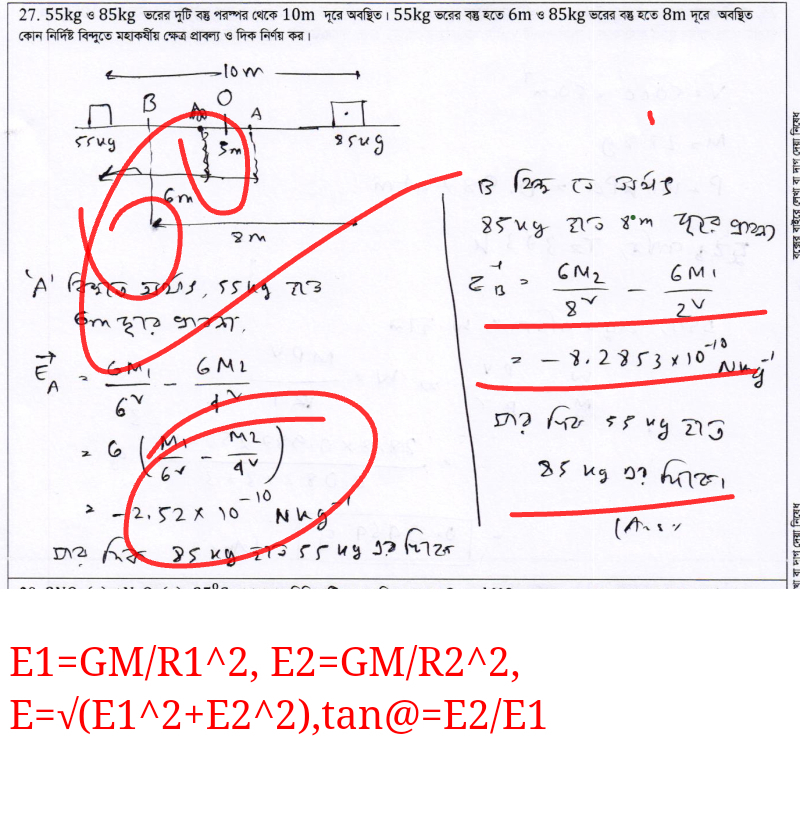 27. 55kg ও 85kg ভরের দুটি বস্তু পরস্পর থেকে 10m দূরে অবস্থিত। 55kg ভরের বস্তু হতে 6m ও 85kg ভরের বস্তু হতে 8m দূরে অবস্থিত
কোন নির্দিষ্ট বিন্দুতে মহাকর্ষীয় ক্ষেত্র প্রাবল্য ও দিক নির্ণয় কর।
10m
B O A
55kg 5m 85kg
6m
8m
'A' বিন্দুতে অর্থাৎ, 55kg হতে
6m দূরে প্রাবল্য,
E_A = GM1/6² - GM2/4²
= G (M1/6² - M2/4²)
= -2.52 × 10^-10 N kg^-1
যার দিক 85kg হতে 55kg এর দিকে
B বিন্দুতে অর্থাৎ
85kg হতে 8m দূরে প্রাবল্য
E_B = GM2/8² - GM1/2²
= -8.2853×10^-10 N kg^-1
যার দিক 55kg হতে
85kg এর দিকে।
(Ans:)
E1=GM/R1^2, E2=GM/R2^2,
E=√(E1^2+E2^2),tan@=E2/E1